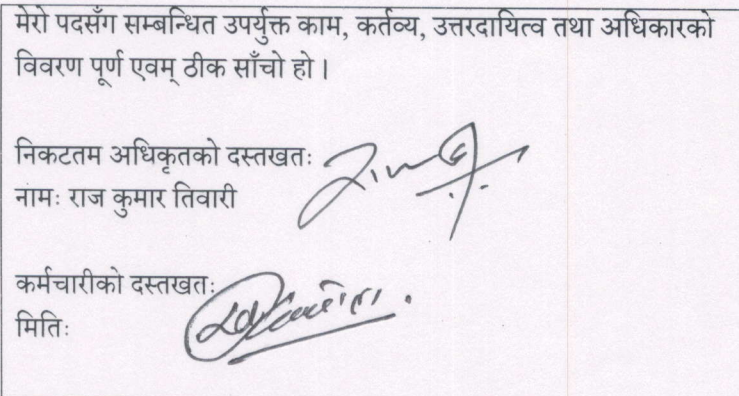 मेरो पदसँग सम्बन्धित उपर्युक्त काम, कर्तव्य, उत्तरदायित्व तथा अधिकारको
विवरण पूर्ण एवम् ठीक साँचो हो।
निकटतम अधिकृतको दस्तखतः
नामः राज कुमार तिवारी
कर्मचारीको दस्तखतः
मितिः